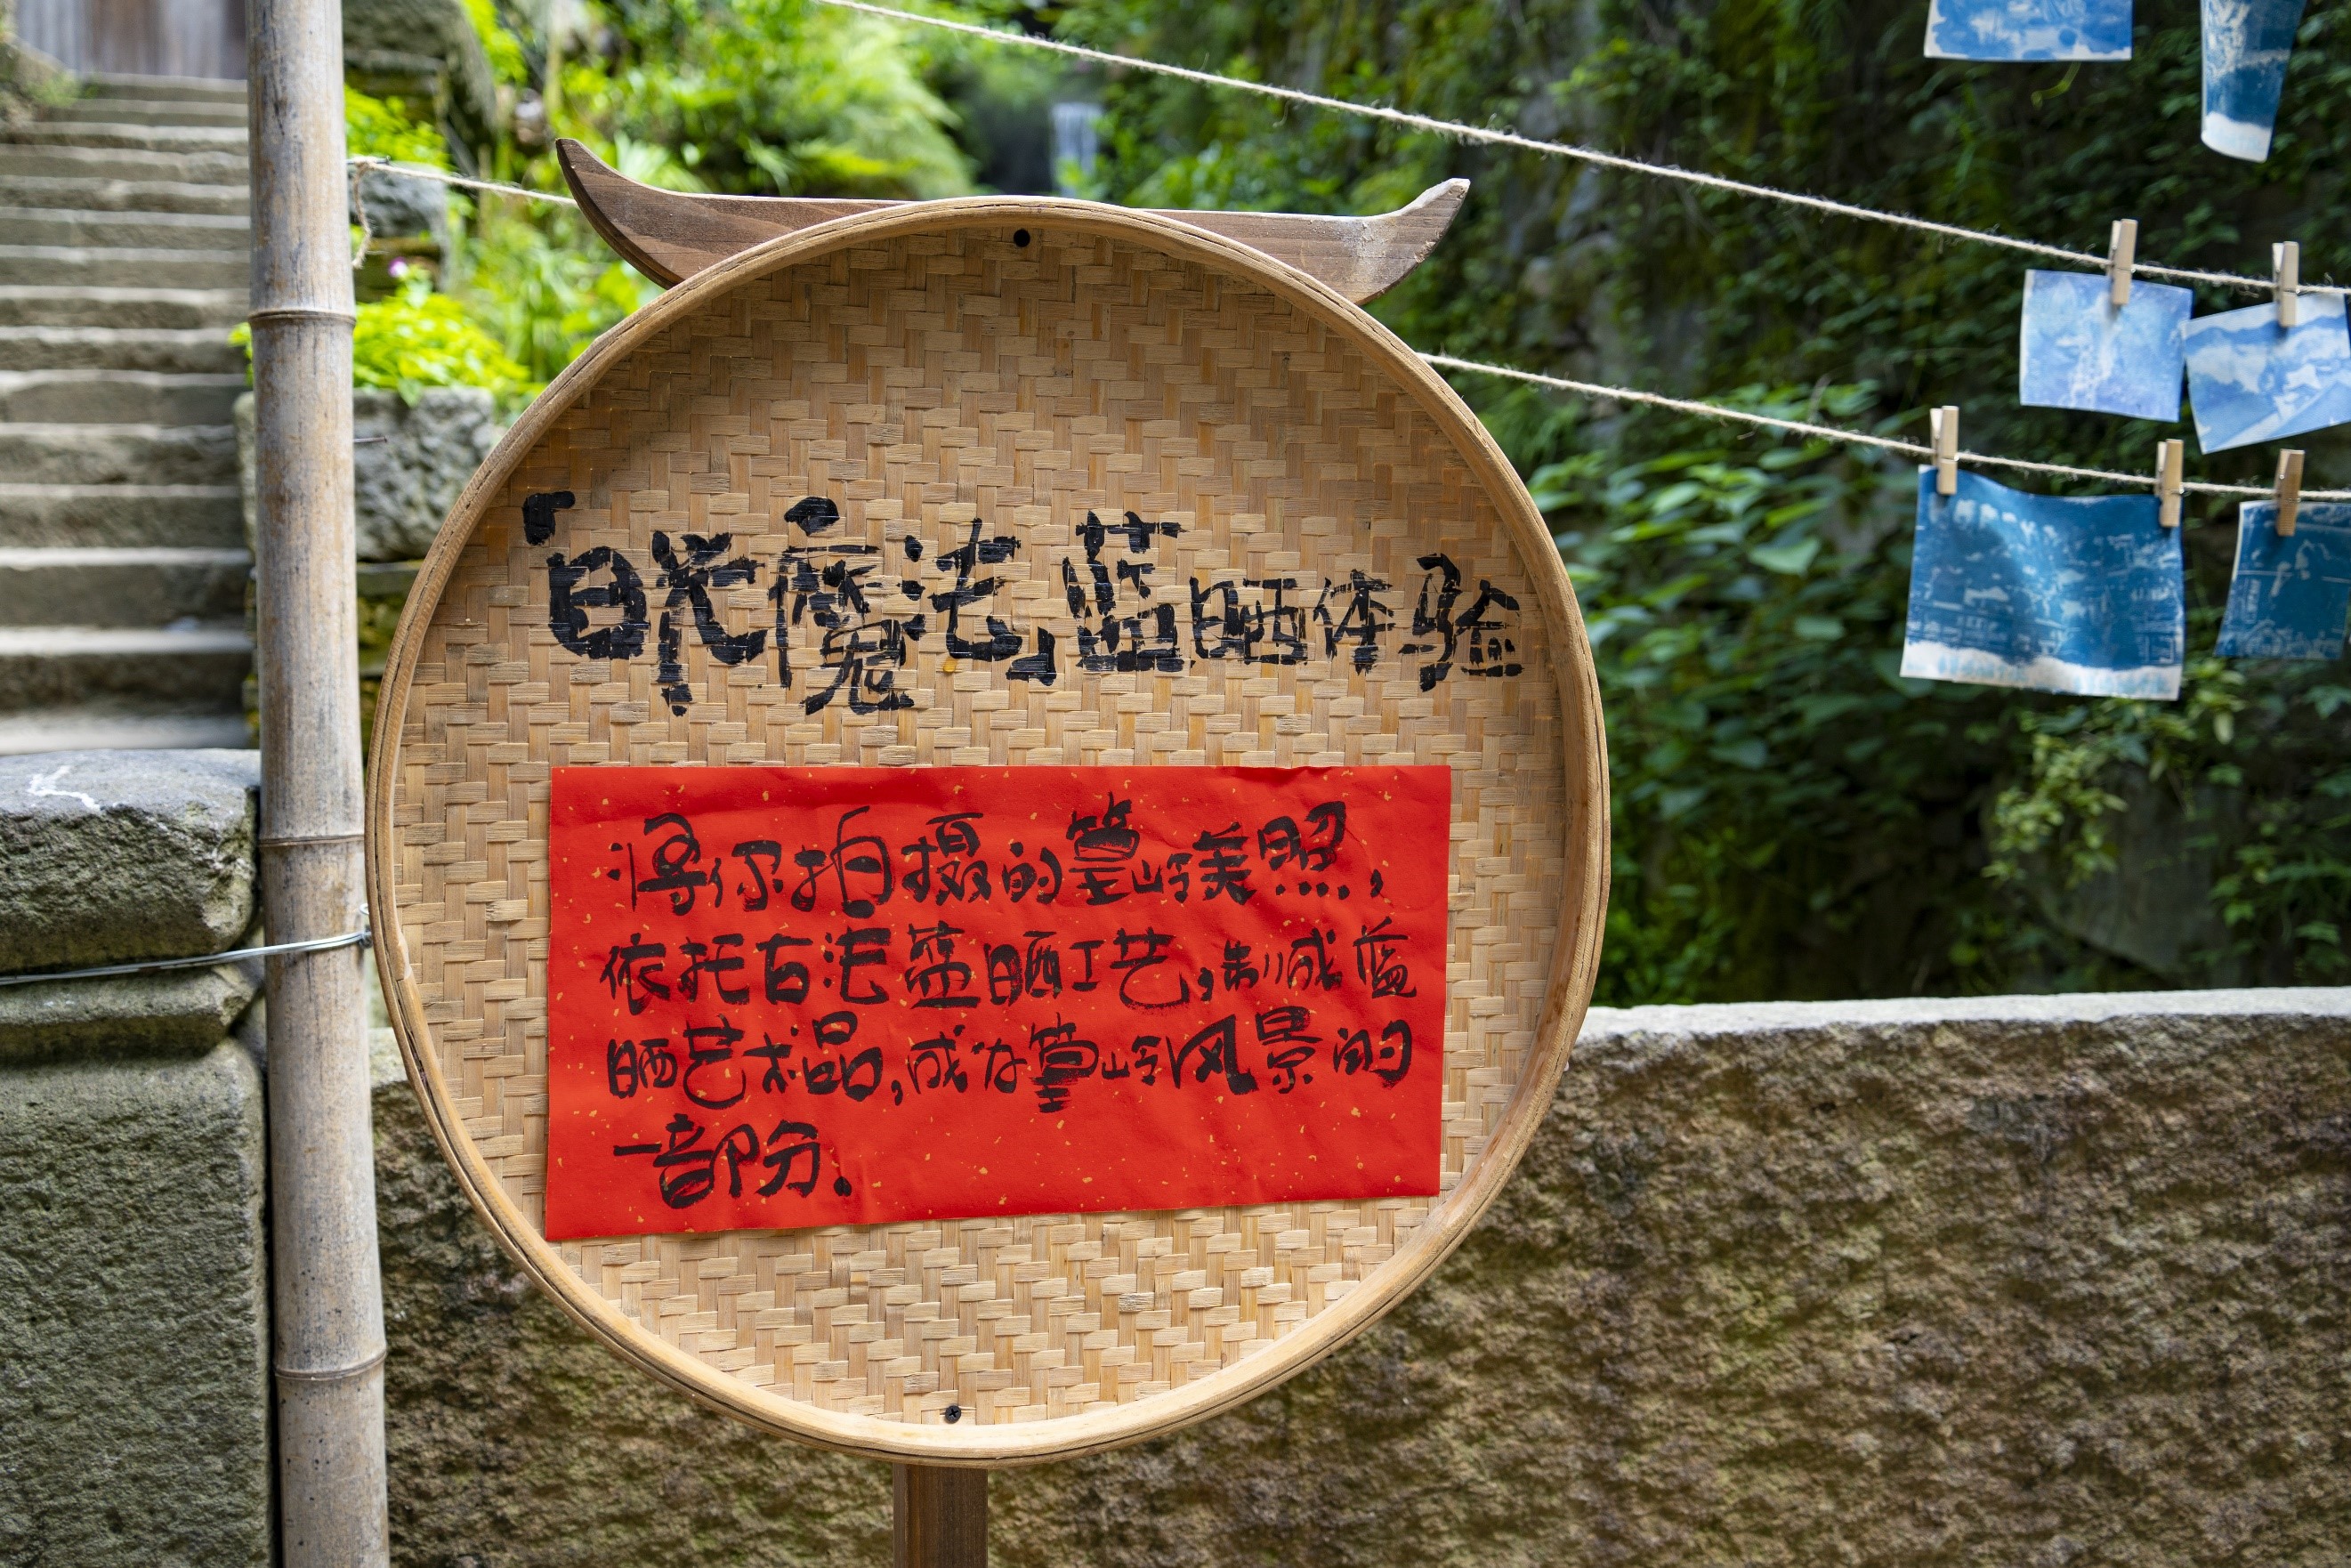 「日光魔法」蓝晒体验
将你拍摄的篁岭美照,
依托古法蓝晒工艺,制成蓝
晒艺术品,成为篁岭风景的
一部份.